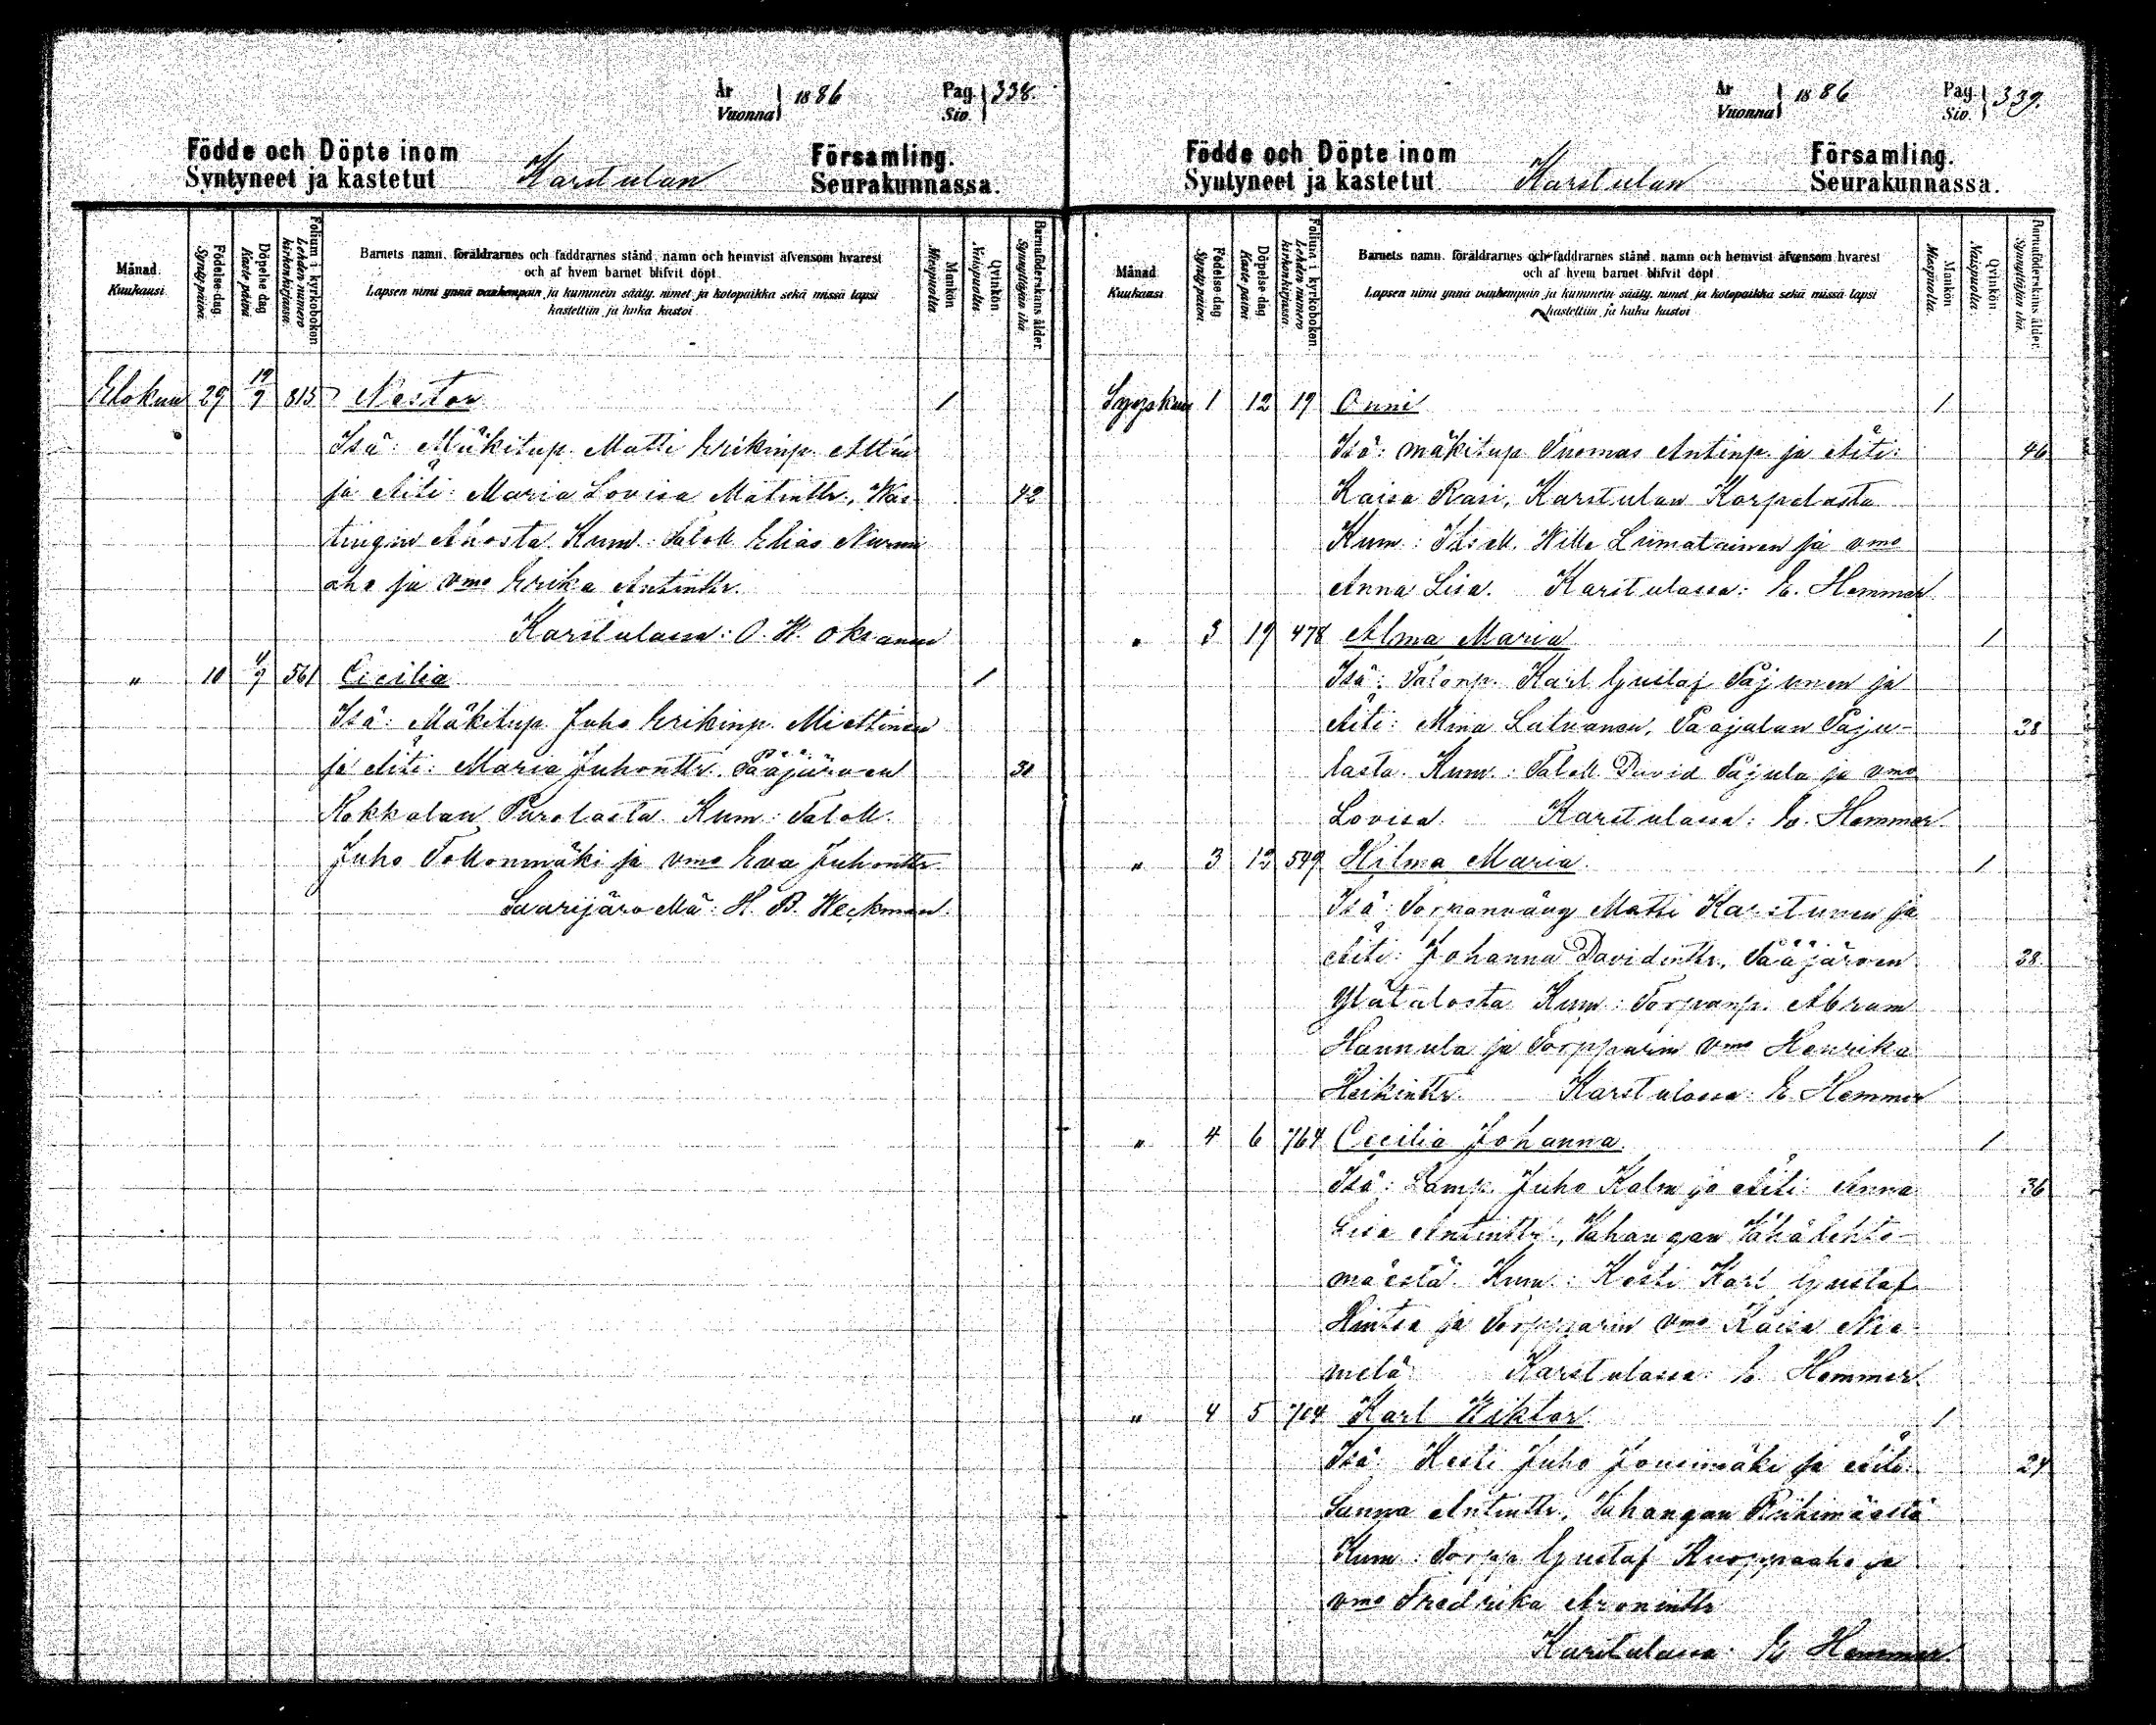 År Vuonna 1886 Pag. Siv. 338.
Födde och Döpte inom Karstulan Församling.
Syntyneet ja kastetut Seurakunnassa.
Månad. Kuukausi
Födelse-dag. Synty-päivä.
Döpelse-dag Kaste-päivä
Folium i kyrkoboken Lehden numero kirkonkirjassa.
Barnets namn, föräldrarnes och faddrarnes stånd, namn och hemvist äfvensom hvarest
och af hvem barnet blifvit döpt.
Lapsen nimi ynnä vanhempain ja kummein sääty, nimet ja kotopaikka sekä missä lapsi
kastettiin ja kuka kastoi.
Mankön Miespuolta
Qvinkön Naispuolta
Barnaföderskans ålder. Synnyttäjän ikä.
Elokuu 29 19/9 815 Nestor 1
Isä: Mäkitup. Matti Erikinp.
ja Äiti: Maria Lovisa Matintr., 42
Ahosta. Kum: Taloll. Elias Nurmi
aho ja vmo Erika Antintr.
Karstulassa: O. W. Oksanen
" 10 4/9 561 Cicilia 1
Isä: Mäkitup. Juho Erikinp. Miettinen
ja Äiti: Maria Juhontr. Pääjärven 30
Kokkalan Purolasta. Kum: Taloll.
Juho Tollonmäki ja vmo Eva Juhontr.
Saarijärvellä: H. B. Weckman.
År Vuonna 1886 Pag. Siv. 339.
Födde och Döpte inom Karstulan Församling.
Syntyneet ja kastetut Seurakunnassa.
Månad. Kuukausi
Födelse-dag Synty-päivä.
Döpelse-dag Kaste-päivä
Folium i kyrkoboken. Lehden numero kirkonkirjassa.
Barnets namn, föräldrarnes och faddrarnes stånd, namn och hemvist äfvensom hvarest
och af hvem barnet blifvit döpt.
Lapsen nimi ynnä vanhempain ja kummein sääty, nimet ja kotopaikka sekä missä lapsi
kastettiin ja kuka kastoi
Mankön Miespuolta.
Qvinkön Naispuolta.
Barnaföderskans ålder. Synnyttäjän ikä.
Syyskuu 1 12 19 Onni 1
Isä: mäkitup Tuomas Antinp. ja Äiti: 46
Kaisa Rasi, Karstulan Korpelasta
Kum: Wille Liimatainen ja vmo
Anna Lisa. Karstulassa: E. Hemmer
" 3 19 478 Alma Maria 1
Isä: Talonp. Karl Gustaf Pajunen ja
Äiti: Mina Latvanen, Paajalan Paju- 38
lasta. Kum: Taloll. David Pajula ja vmo
Lovisa. Karstulassa: E. Hemmer.
" 3 12 549 Hilma Maria. 1
Isä: Torpanväug Matti Karstunen ja
Äiti: Johanna Davidintr., Pääjärven 38.
Ylätalosta Kum: Torpanp. Abram
Hannula ja Torpparin vmo Henrika
Heikintr. Karstulassa: E. Hemmer
" 4 6 764 Cecilia Johanna. 1
Isä: Lamp. Juho Kalm ja Äiti: Anna 36
Lisa Antintr., Vahangan Vähälehto-
mäestä. Kum: Kesti Karl Gustaf
Hintsa ja Torpparin vmo Kaisa Nie-
melä Karstulassa: E. Hemmer
" 4 5 704 Karl Wiktor 1
Isä: Kesti Juho Jousimäki ja Äiti: 24
Sanna Antintr., Vahangan Riihimäestä
Kum: Torpp Gustaf Kuoppaaho ja
vmo Fredrika Aronintr
Karstulassa: E. Hemmer.